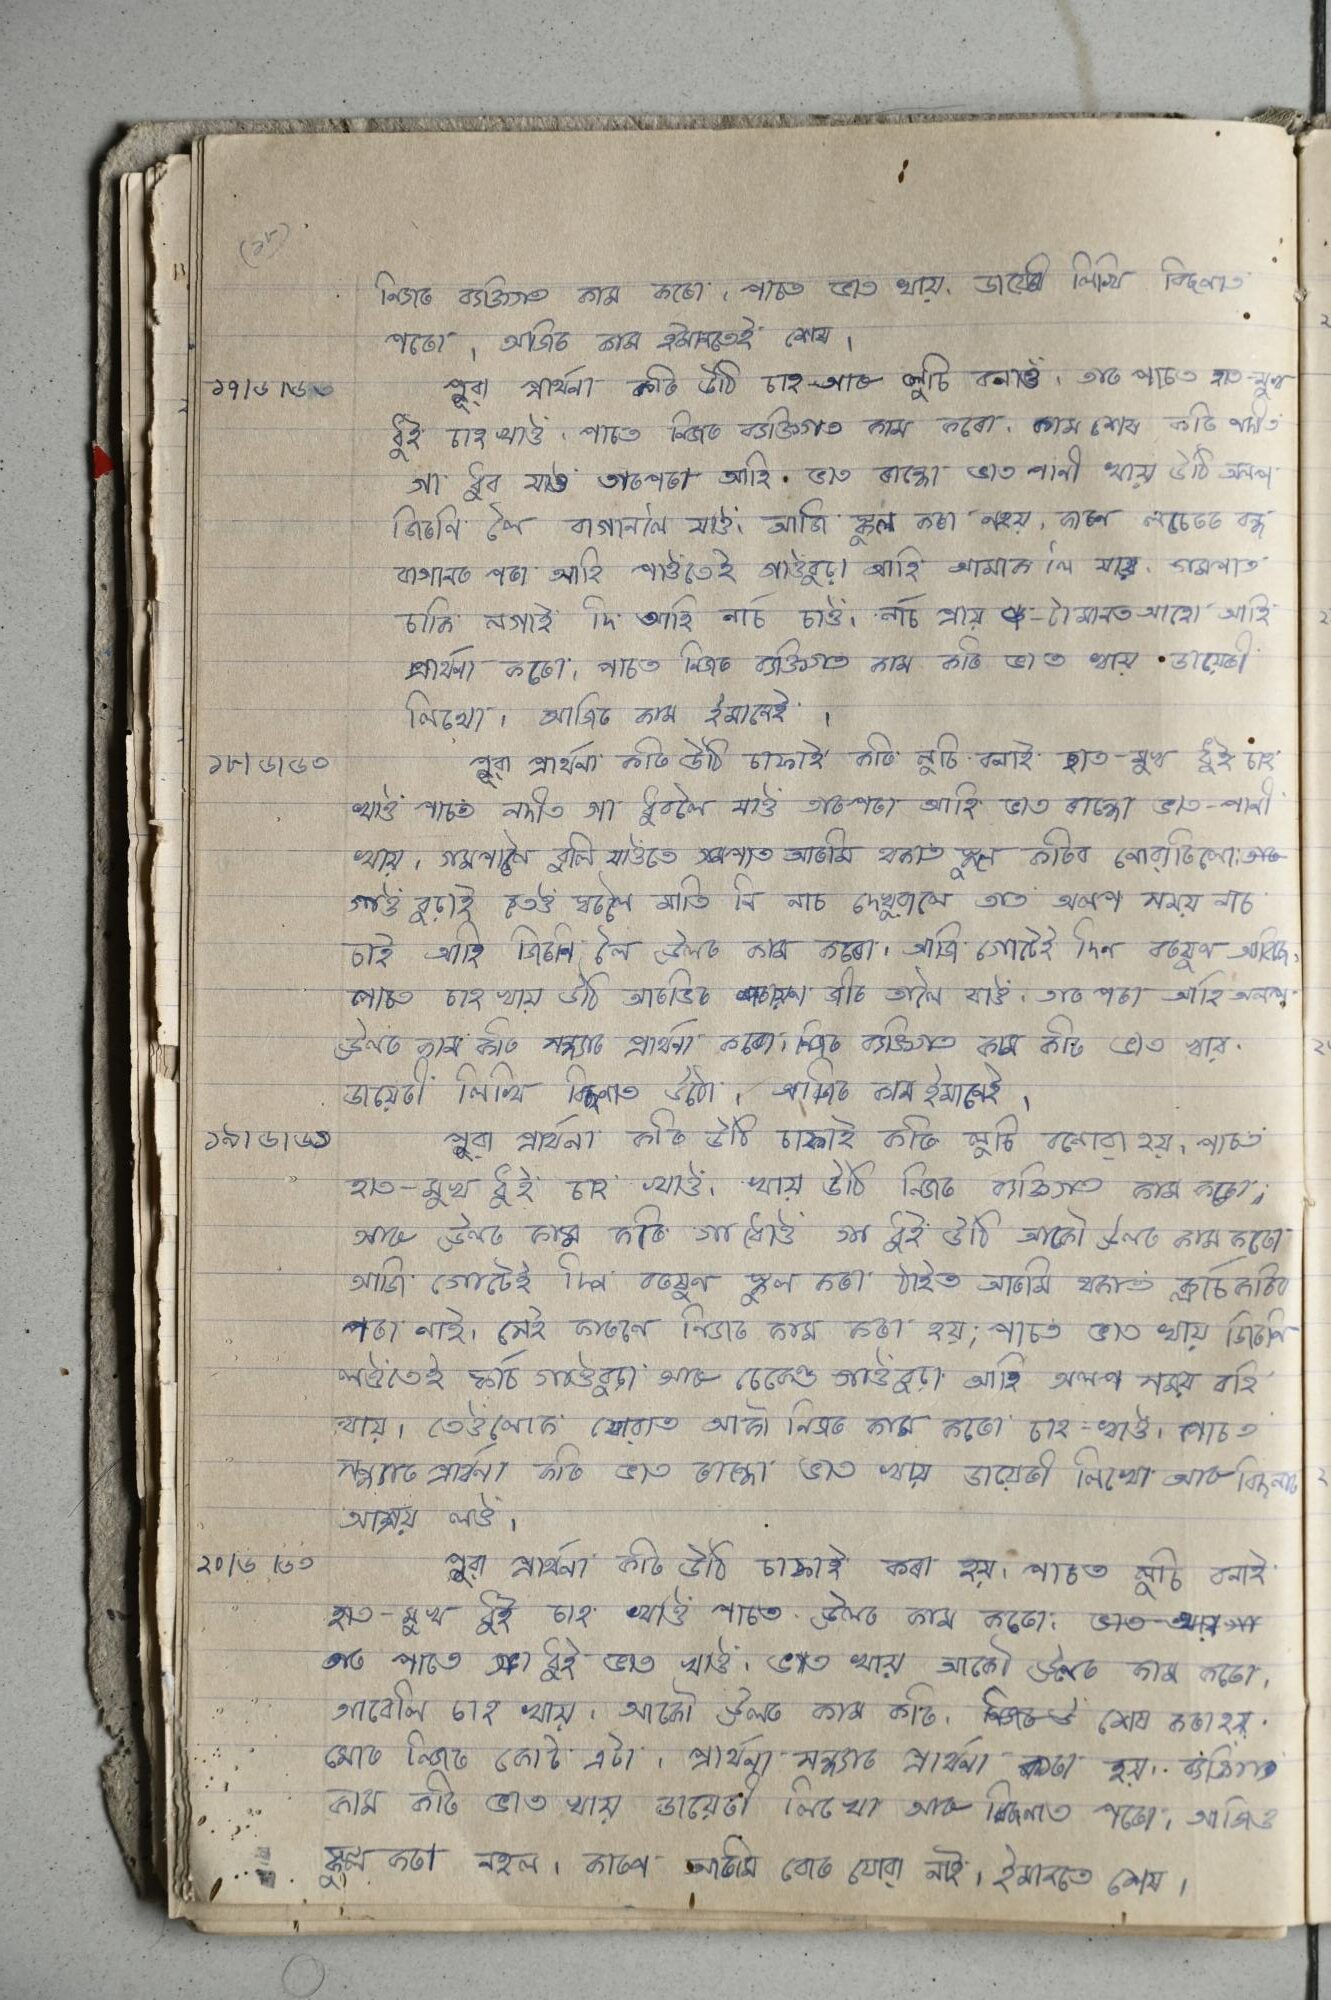 (১৮)
নিজৰ ব্যক্তিগত কাম কৰো, পাচত ভাত খায়, ডায়েৰী লিখি বিছনাত
পৰো, আজিৰ কাম ইমানতেই শেষ,
১৭/৬/৬৩ পুৱা প্ৰাৰ্থনা কৰি উঠি চাহ আৰু লুচি বনাওঁ, তাৰ পাচত হাত-মুখ
ধুই চাহ খাওঁ, পাচত নিজৰ ব্যক্তিগত কাম কৰো, কাম শেষ কৰি নদীত
গা ধুব যাওঁ তাৰপৰা আহি ভাত ৰান্ধো ভাত পানী খায় উঠি অলপ
জিৰণি লৈ বাগানলৈ যাওঁ, আজি স্কুল কৰা নহয়, কাৰণ
বাগানৰ পৰা আহি পাওঁতেই গাওঁবুঢ়া আহি আমাক নি যায়, গমপাত
চাকি লগাই দি আহি নাচ চাওঁ, নাচ প্ৰায় মানত আহো আহি
প্ৰাৰ্থনা কৰো, পাচত নিজৰ ব্যক্তিগত কাম কৰি ভাত খায় ডায়েৰী
লিখো, আজিৰ কাম ইমানেই,
১৮/৬/৬৩ পুৱা প্ৰাৰ্থনা কৰি উঠি চাফাই কৰি লুচি বনাই হাত-মুখ ধুই চাহ
খাওঁ পাচত নদীত গা ধুবলৈ যাওঁ তাৰপৰা আহি ভাত ৰান্ধো ভাত-পানী
খায়, গমপালৈ বুলি যাওঁতে গমপাত আৰমি থকাত স্কুল কৰিব নোৱাৰিলো,
গাওঁ বুঢ়াই তেওঁ ঘৰলৈ মাতি নি নাচ দেখুৱালে তাত অলপ সময় নাচ
চাই আহি জিৰণি লৈ উলৰ কাম কৰো, আজি গোটেই দিন বৰষুণ আছিল,
পাচত চাহ খায় উঠি যাওঁ, তাৰ পৰা আহি অলপ
উলৰ কাম কৰি সন্ধ্যাৰ প্ৰাৰ্থনা কৰো, নিজৰ ব্যক্তিগত কাম কৰি ভাত খায়,
ডায়েৰী লিখি বিছনাত উঠো, আজিৰ কাম ইমানেই,
১৯/৬/৬৩ পুৱা প্ৰাৰ্থনা কৰি উঠি চাফাই কৰি লুচি বনোৱা হয়, পাচত
হাত-মুখ ধুই চাহ খাওঁ, খায় উঠি নিজৰ ব্যক্তিগত কাম কৰো,
আৰু উলৰ কাম কৰি গা ধোওঁ গা ধুই উঠি আকৌ উলৰ কাম কৰো
আজি গোটেই দিন বৰষুণ স্কুল কৰা ঠাইত আৰমি থকাত ক্লাচ কৰিব
পৰা নাই, সেই কাৰণে নিজৰ কাম কৰা হয়, পাচত ভাত খায় জিৰণি
লওঁতেই গাওঁবুঢ়া আৰু গাওঁবুঢ়া আহি অলপ সময় বহি
যায়, তেওঁলোক যোৱাত আকৌ নিজৰ কাম কৰো চাহ-খাওঁ, পাচত
সন্ধ্যাৰ প্ৰাৰ্থনা কৰি ভাত ৰান্ধো ভাত খায় ডায়েৰী লিখো আৰু বিছনাত
আশ্ৰয় লওঁ,
২০/৬/৬৩ পুৱা প্ৰাৰ্থনা কৰি উঠি চাফাই কৰা হয়, পাচত লুচি বনাই
হাত-মুখ ধুই চাহ খাওঁ পাচত উলৰ কাম কৰো, ভাত
তাৰ পাচত গা ধুই ভাত খাওঁ, ভাত খায় আকৌ উলৰ কাম কৰো,
আবেলি চাহ খায়, আকৌ উলৰ কাম কৰি, শেষ কৰা হয়,
মোৰ নিজৰ কোট এটা, প্ৰাৰ্থনা সন্ধ্যাৰ প্ৰাৰ্থনা কৰা হয়, ব্যক্তিগত
কাম কৰি ভাত খায় ডায়েৰী লিখো আৰু বিছনাত পৰো, আজিও
স্কুল কৰা নহল, কাৰণ আৰমি বোৰ যোৱা নাই, ইমানতে শেষ,